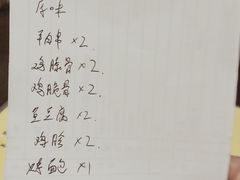 原味
平肉串×2.
鸡腺骨×2.
鸡脆骨×2.
鱼豆腐×2.
鸡胗×2.
烤面包×1